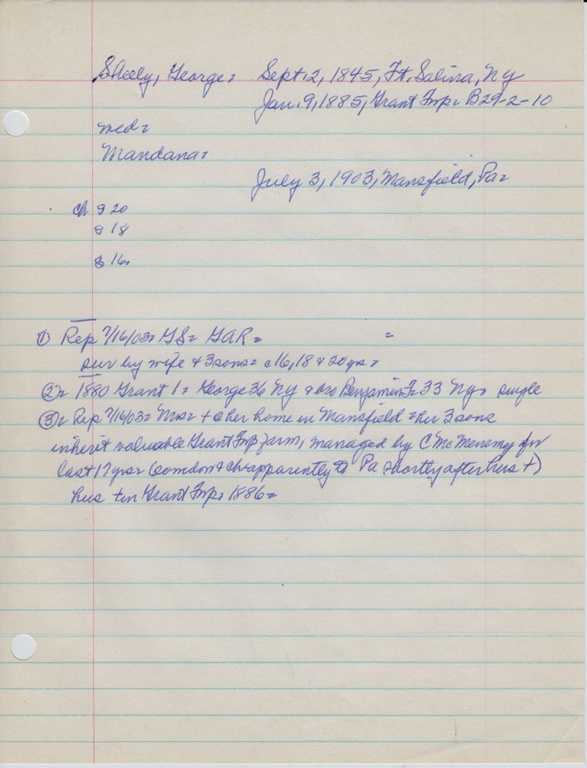 Sheely, George= Sept. 2, 1845, Ft. Salina, NY
Jan. 9, 1885, Grant Tnp= B29-2-10
med=
Mandana=
July 3, 1903, Mansfield, Pa=
ch 20
18
16=
① Rep 7/16/03= GS= GAR= =
sur by wife & 3 sons= c16, 18 & 20 yrs=
②= 1880 Grant 1= George 36 NY & bro Benjamin F= 33 NY= single
③= Rep 7/16/03= Mrs= + @ her home in Mansfield= her 3 sons
inherit valuable Grant Tnp farm, managed by C McMenemy for
last 17 yrs= (so mdon & ch apparently to Pa shortly after hus +)
hus + in Grant Tnp= 1886=